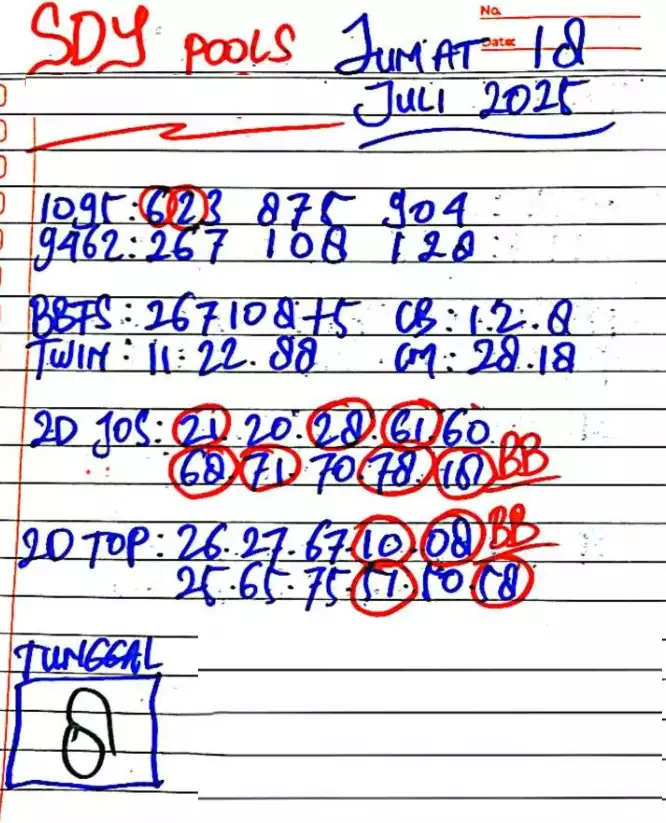 No.
Date:
SDY POOLS JUM'AT 18
JULI 2025
1095:623 875 904
9462:267 108 128
BBFS: 267108+5 CB: 1.2.8
TWIN: 11.22.88 CM: 28.18
2D JOS: 21.20.28.61.60
68.71.70.78.18 BB
2D TOP: 26.27.67.10.08 BB
25.65.75.51.50.58
TUNGGAL
8